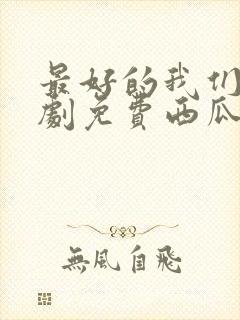 最好的我们
劇免費西瓜
無風自飛